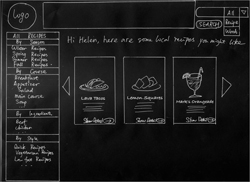 Logo
All
Recipe
Week
SEARCH
Hi Helen, here are some local recipes you might like
All Recipes
By Season
Winter Recipes
Spring Recipes
Summer Recipes
Fall Recipes
By Course
Breakfast
Appetizer
Salad
Main course
Soup
By Ingredients
Beef
Chicken
By Style
Quick Recipes
Vegetarian Recipes
Low-fat Recipes
Lava Tacos
Lemon Squares
Mark's Orangeade